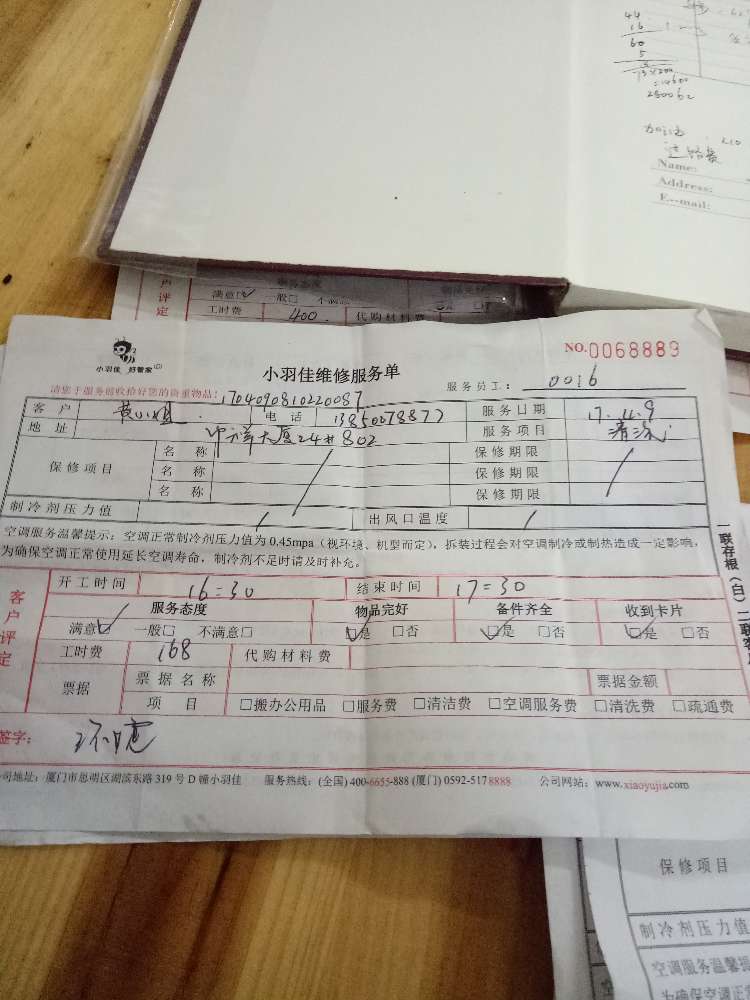 44
16
60
5
Name:
Address:
E--mail:
服务态度
满意☑ 一般□ 不满意□
工时费 400 代购材料费
户评定
小羽佳 好管家
小羽佳维修服务单
NO.0068889
请您于服务前收拾好您的贵重物品! 1704090810220087
服务员工: 0016
客户 黄小姐 电话 13850078877 服务日期 17.4.9
地址 中祥大厦24#802 服务项目 清洗
保修项目 名称 保修期限
名称 保修期限
名称 保修期限
制冷剂压力值 出风口温度
空调服务温馨提示:空调正常制冷剂压力值为0.45mpa(视环境、机型而定),拆装过程会对空调制冷或制热造成一定影响,
为确保空调正常使用延长空调寿命,制冷剂不足时请及时补充。
客户评定
开工时间 16:30 结束时间 17:30
服务态度 物品完好 备件齐全 收到卡片
满意☑ 一般□ 不满意□ ☑是 □否 ☑是 □否 ☑是 □否
工时费 168 代购材料费
票据 票据名称 票据金额
项目 □搬办公用品 □服务费 □清洁费 □空调服务费 □清洗费 □疏通费
签字:
司地址:厦门市思明区湖滨东路319号D幢小羽佳 服务热线:(全国)400-6655-888 (厦门)0592-5178888 公司网站:www.xiaoyujia.com
一联存根(白)二联客
保修项目
制冷剂压力值
空调服务温馨提
为确保空调正